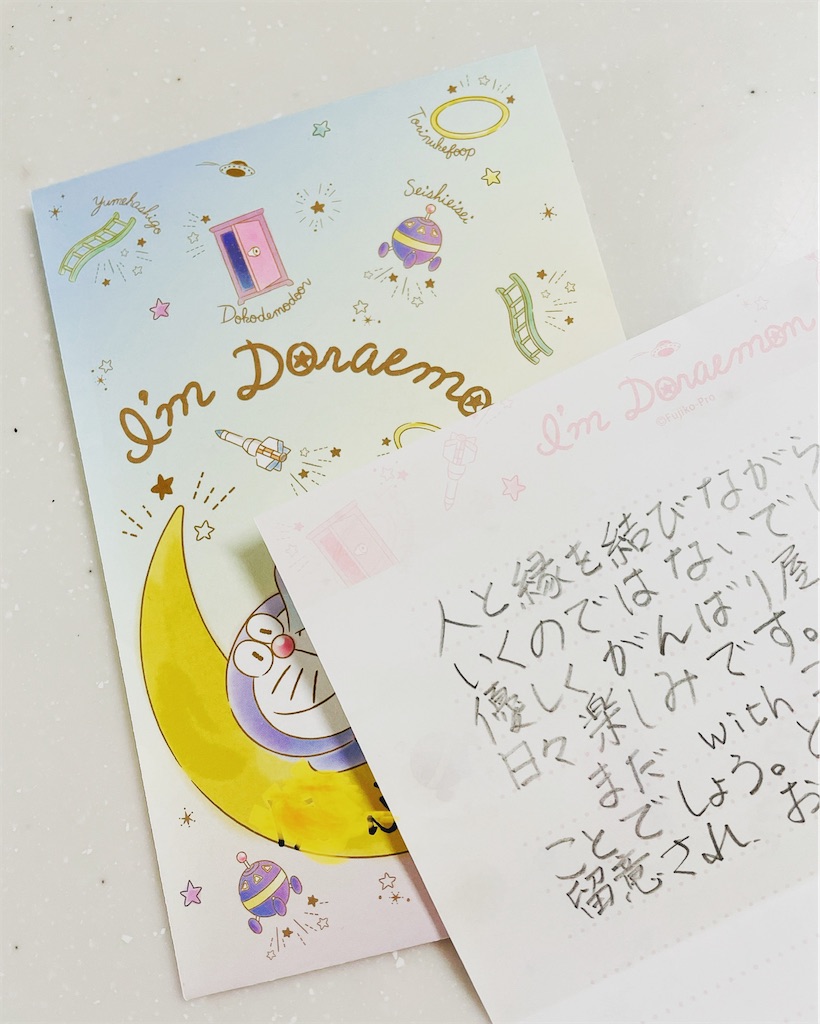 Torinukefoop
Yumehashigo
Seishieisei
Dokodemodoor
I'm Doraemo
I'm Doraemon
©Fujiko-Pro
人と縁を結びながら
いくのではないでし
優しくがんばり屋
日々楽しみです。
まだ with
ことでしょう。と
留意され、お